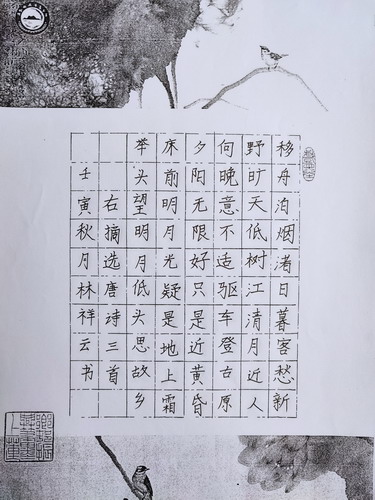 移舟泊烟渚日暮客愁新
野旷天低树江清月近人
向晚意不适驱车登古原
夕阳无限好只是近黄昏
床前明月光疑是地上霜
举头望明月低头思故乡
右摘选唐诗三首
壬寅秋月林祥云书